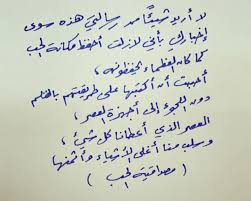 لا أريد شيئًا من رسالتي هذه سوى
إخبارك بأني لازلت أحفظ مكانة الحب
كما كان العظماء يحفظونه ،
أحببت أن أكتبها على طريقتهم بالقلم
دون اللجوء إلى أجهزة العصر ،
العصر الذي أعطانا كل شيء ،
وسلب منا أغلى الأشياء وأثمنها
( مصداقية الحب )